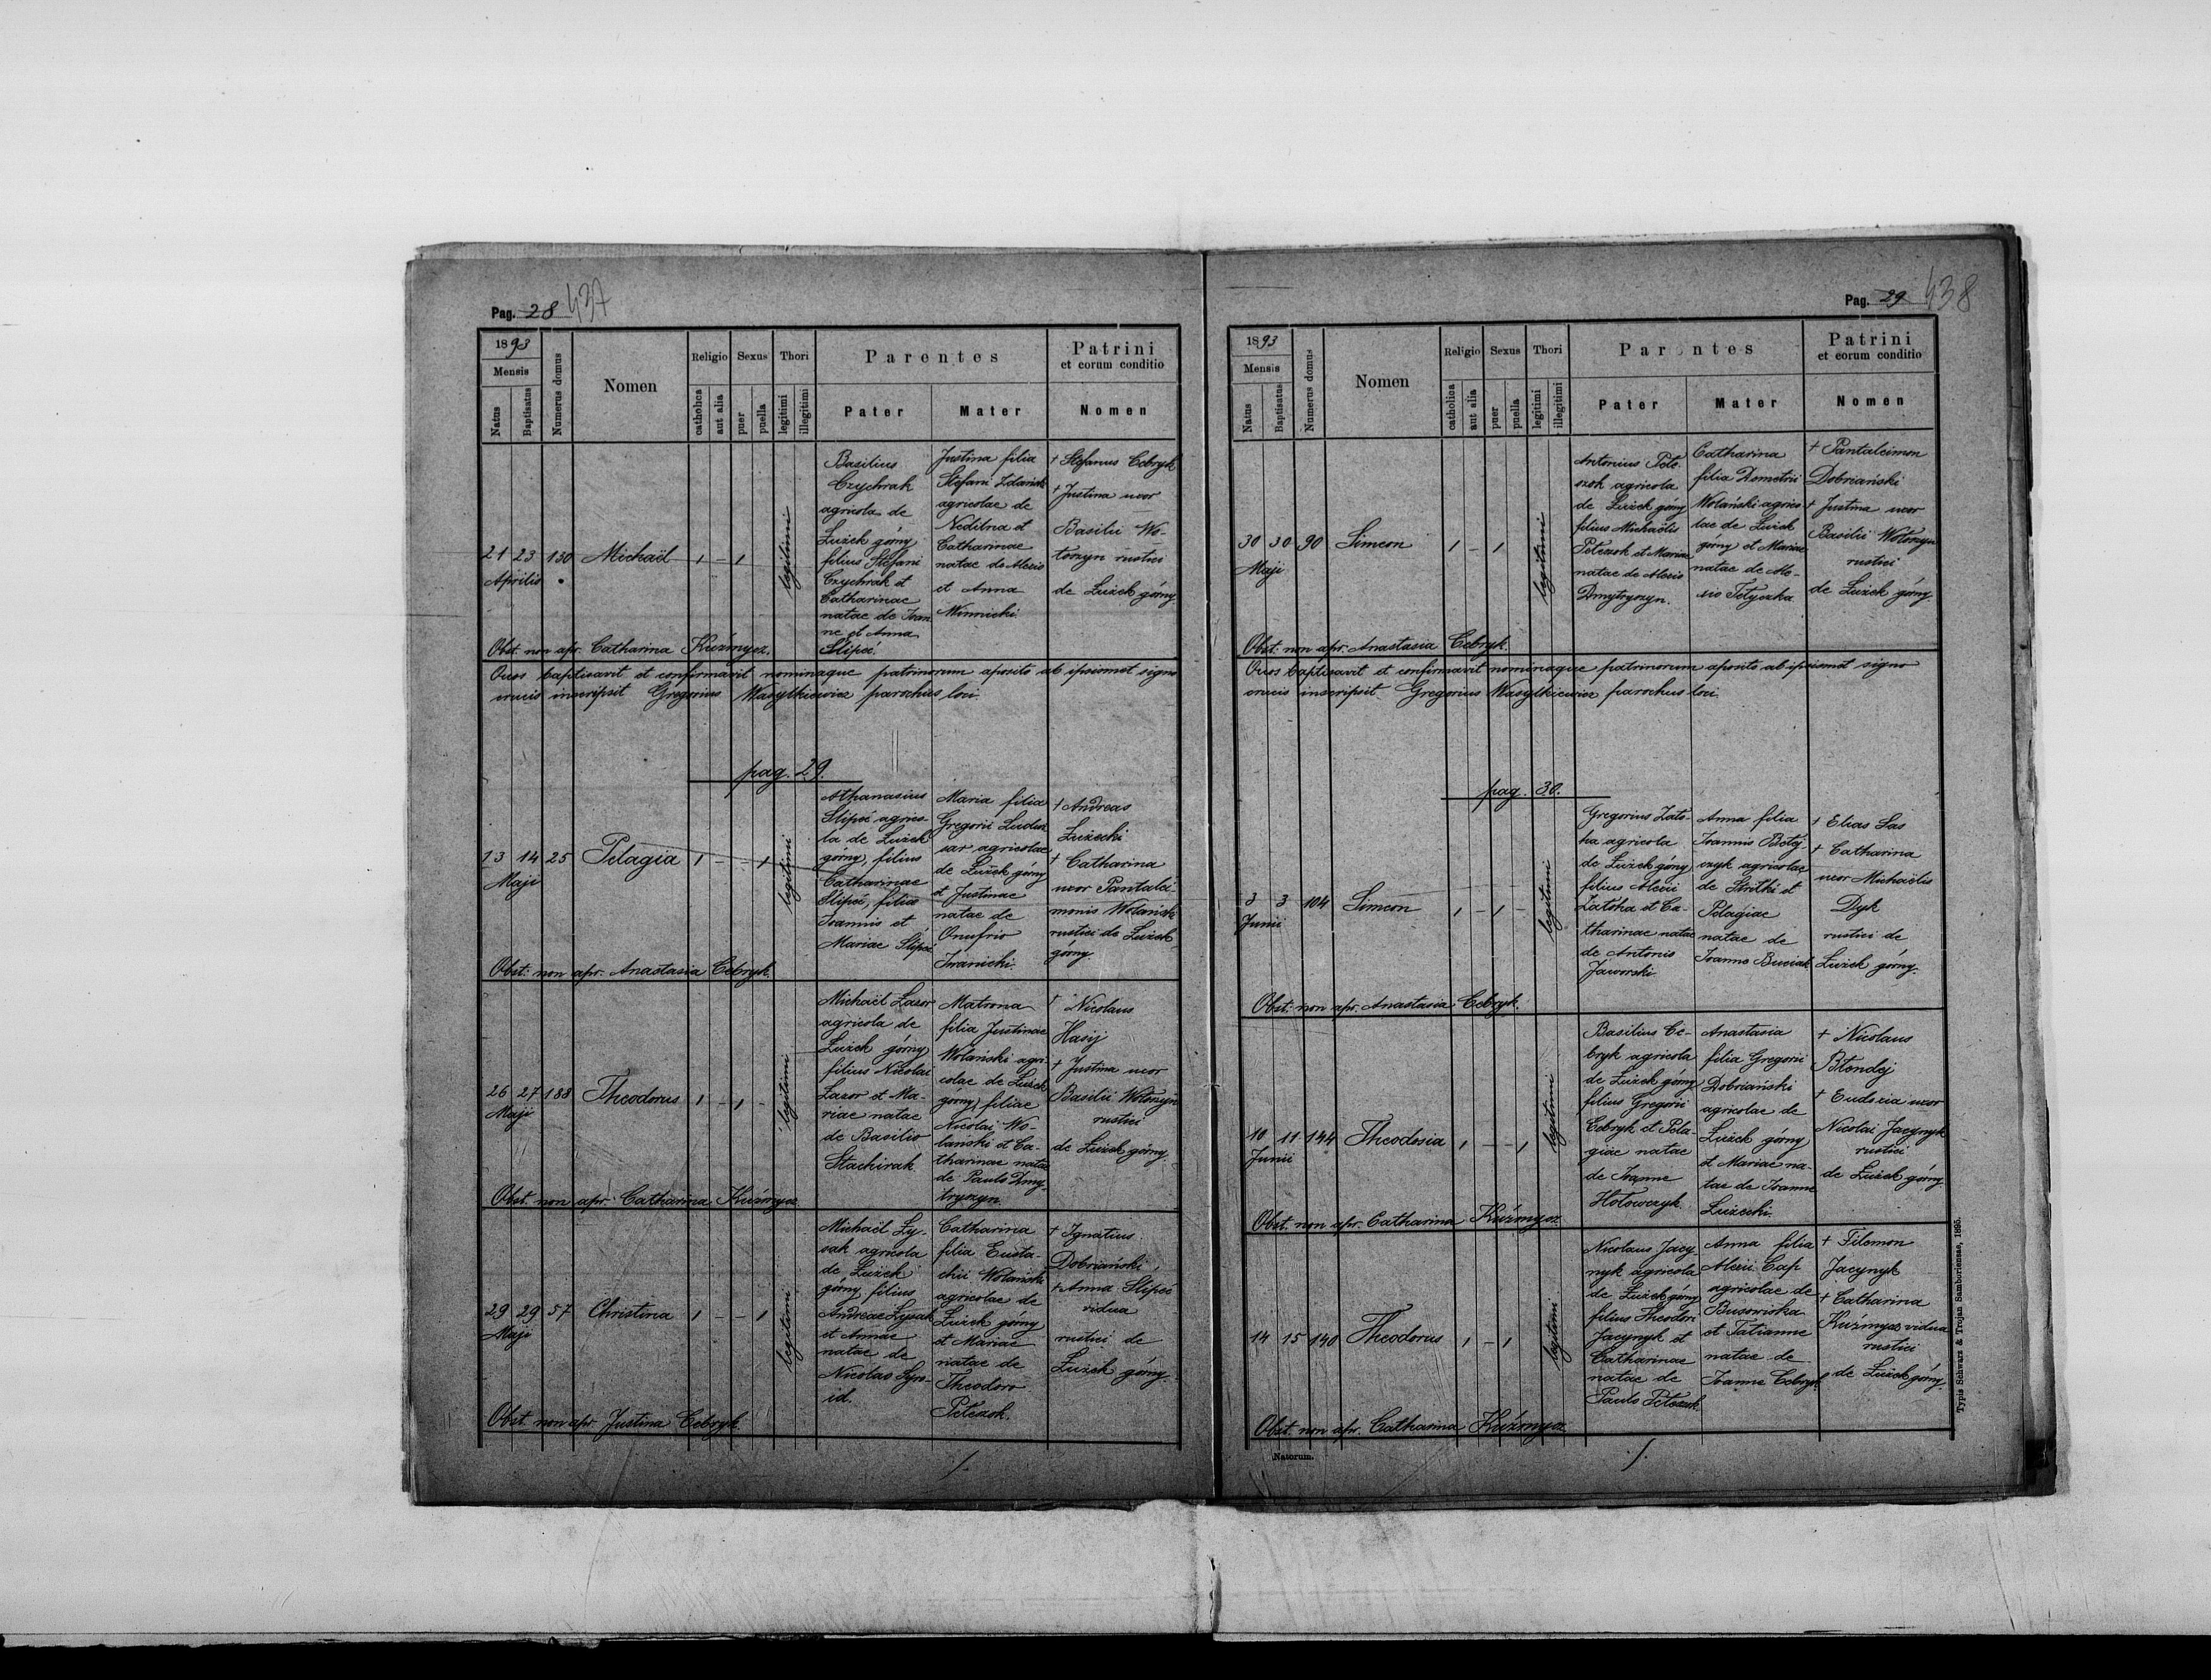 Pag. 28 437
1893
Mensis
Natus
Baptisatus
Numerus domus
Nomen
Religio
catholica
aut alia
Sexus
puer
puella
Thori
legitimi
illegitimi
Parentes
Pater
Mater
Patrini
et eorum conditio
Nomen
21 23 130 Michaël 1 - 1 legitimi
Aprilis
Basilius
Czychrak
agricola de
Łużek górny
filius Stefani
Czychrak et
Catharinae
natae de Ioan
ne et Anna
Slipeć
Justina filia
Stefani Zdański
agricolae de
Nedilna et
Catharinae
natae de Alexio
et Anna
Winnicki
† Stefanus Cebryk
† Justina uxor
Basilii Wo-
łoszyn rustici
de Łużek górny
Obst. non apr. Catharina Kuźmycz.
Quos baptisavit et confirmavit nominaque patrinorum aposito ab ipsismet signo
crucis inscripsit Gregorius Wasylkiewicz parochus loci.
pag. 29.
13 14 25 Pelagia 1 - - 1 legitimi
Maji
Athanasius
Slipeć agrico-
la de Łużek
górny, filius
Catharinae
Slipeć, filiae
Ioannis et
Mariae Slipeć
Maria filia
Gregorii
agricolae
de Łużek górny
et Justinae
natae de
Onufrio
Iwanicki.
† Andreas
Łużecki
† Catharina
uxor Pantalei-
monis Wolański
rustici de Łużek
górny
Obst: non apr. Anastasia Cebryk.
26 27 188 Theodorus 1 - 1 - legitimi
Maji
Michaël Lazor
agricola de
Łużek górny
filius Nicolai
Lazor et Ma-
riae natae
de Basilio
Stachirak
Matrona
filia Justinae
Wolański agri-
colae de Łużek
górny, filiae
Nicolai Wo-
lański et Ca-
tharinae natae
de Paulo Dmy-
tryszyn.
† Nicolaus
Hasij
† Justina uxor
Basilii Wołoszyn
rustici
de Łużek górny.
Obst. non apr. Catharina Kuźmycz
29 29 57 Christina 1 - - 1 legitimi
Maji
Michaël Ły-
sak agricola
de Łużek
górny, filius
Andreae Łysak
et Annae
natae de
Nicolao Syro-
id.
Catharina
filia Eusta-
chii Wolański
agricolae de
Łużek górny
et Mariae
natae de
Theodoro
Petczok.
† Ignatius
Dobriański,
† Anna Slipeć
vidua
rustici de
Łużek górny.
Obst. non apr. Justina Cebryk
Pag. 29 438
1893
Mensis
Natus
Baptisatus
Numerus domus
Nomen
Religio
catholica
aut alia
Sexus
puer
puella
Thori
legitimi
illegitimi
Parentes
Pater
Mater
Patrini
et eorum conditio
Nomen
30 30 90 Simeon 1 - 1 legitimi
Maji
Antonius Pet-
czok agricola
de Łużek górny
filius Michaëlis
Petczok et Mariae
natae de Alexio
Dmytryszyn.
Catharina
filia Demetrii
Wolański agrico
lae de Łużek
górny et Mariae
natae de Ale-
xio Tetyczka
† Pantaleimon
Dobriański
† Justina uxor
Basilii Wołoszyn
rustici
de Łużek górny.
Obst: non apr. Anastasia Cebryk.
Quos baptisavit et confirmavit nominaque patrinorum aposito ab ipsismet signo
crucis inscripsit Gregorius Wasylkiewicz parochus loci.
pag. 30.
3 3 104 Simeon 1 - 1 - legitimi
Junii
Gregorius Zato-
ha agricola
de Łużek górny
filius Alexii
Zatoha et Ca-
tharinae natae
de Antonio
Jaworski.
Anna filia
Ioannis
agricolae
de Striłki et
Pelagiae
natae de
Ioanne Buciak
† Elias Las
† Catharina
uxor Michaëlis
Dyk
rustici de
Łużek górny.
Obst: non apr. Anastasia Cebryk.
10 11 144 Theodosia 1 - - 1 legitimi
Junii
Basilius Ce-
bryk agricola
de Łużek górny
filius Gregorii
Cebryk et Pela-
giae natae
de Ioanne
Hołowczyk.
Anastasia
filia Gregorii
Dobriański
agricolae de
Łużek górny
et Mariae na-
tae de Ioanne
Łużecki.
† Nicolaus
Błendej
† Eudoxia uxor
Nicolai Jacynyk
rustici
de Łużek górny.
Obst. non apr. Catharina Kuźmycz
14 15 140 Theodorus 1 - 1 legitimi
Nicolaus Jacy-
nyk agricola
de Łużek górny
filius Theodori
Jacynyk et
Catharinae
natae de
Paulo Petczok.
Anna filia
Alexii Cap
agricolae de
Busowiska
et Tatianne
natae de
Ioanne Cebryk
† Filemon
Jacynyk
† Catharina
Kuźmycz vidua
rustici
de Łużek górny.
Obst. non apr. Catharina Kuźmycz
Natorum.
Typis Schwarz & Trojan Samboriensae, 1895.